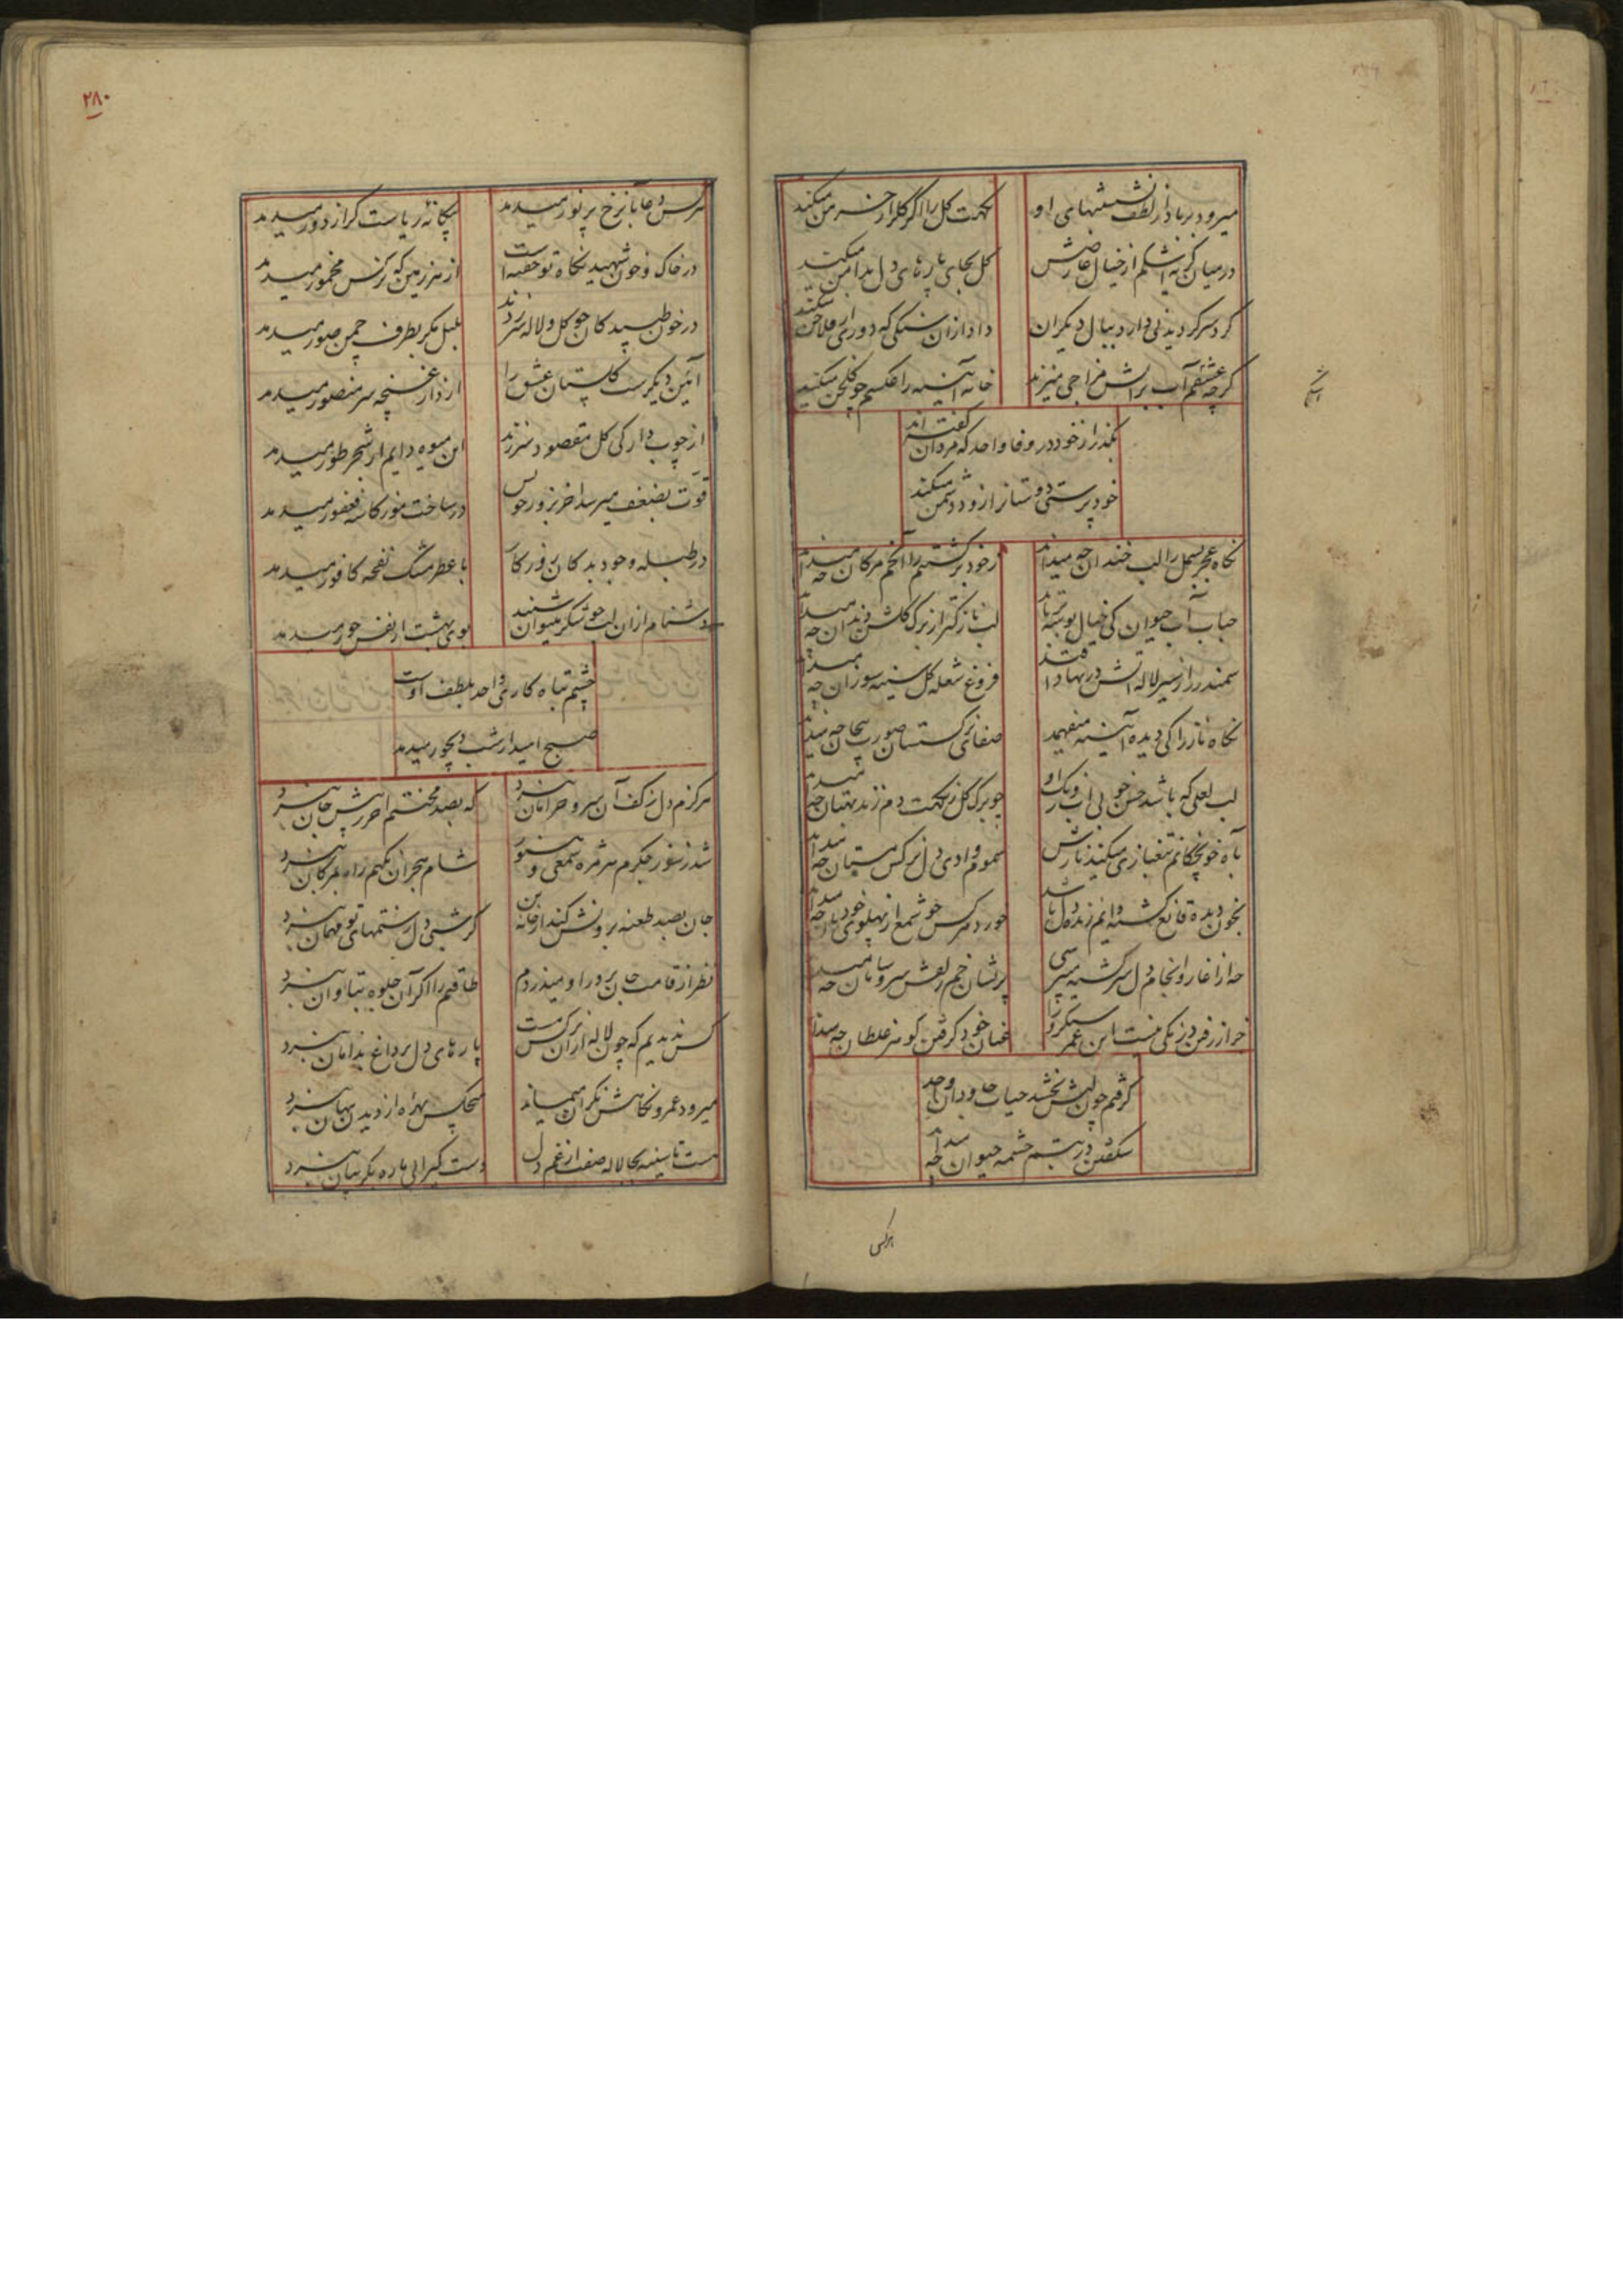 میرود بر باد از لطف نشینهای او
نکهت کل را اکر کلزار خرمن میکند
در میان کریه اشکم از خیال عارضش
کل بجای پارهای دل بدامن میکند
کرد سر کردیدنی دارد ببال دیکران
داد ازان سنکی که دوری از فلاخن میکند
کرچه عشقم آب بر آتش مزاجی میزند
خانه آیینه را عکسم چو کلخن میکند
بکذر از خود در وفا واحد که مردان کفته اند
خود پرستی دوستان از زود دشمن میکند
نکاه عجز بسمل را لب خندان چه میداند
ز خود برکشتنم را خم مژکان چه میداند
حباب آب حیوان کی خیال بوسه
لب نازکتر از برک کلش دندان چه میداند
سمندر راز سیر لاله آتش در نهاد افتد
فروغ شعله کل سینه سوزان چه میداند
نکاه ناز را کی دیده آیینه میفهمد
صفای نرکستان صورت بیجان چه میداند
لب لعلی که باشد حسن خوبی آب و رنک او
چو برک کل ز نکهت دم زند بهتان چه میداند
بآه خونچکانم تیغبازی میکند نازش
سموم وادی دل نرکس مستان چه میداند
بخون دیده قانع کشته دایم زنده دل باشد
خورد هرکس چو شمع از پهلوی خود نان چه میداند
چه از آغاز و انجام دل سرکشته میپرسی
پریشان خم زلفش سر و سامان چه میداند
خراز رفتن درنکی نیست این عمر سبکرو را
عنان خود کرفتن کوهر غلطان چه میداند
کرفتم چون لبش بخشد حیات جاودان واحد
شکفتن در تبسم چشمه حیوان چه میداند
هرکس
۲۸۰
هرکس دعا بآن رخ پر نور میدمد
در خاک و خون شهید نکاه تو خفته است
از هر زمین که نرکس مخمور میدمد
در خون طپیدکان چو کل و لاله سر زدند
بلبل مکر بطرف چمن صور میدمد
آیین دیکرست کلستان عشق را
از دار غنچه سر منصور میدمد
از چوب دار کی کل مقصود سر زند
این میوه دایم از شجر طور میدمد
قوت بضعف میرسد آخر بزور حرص
در ساخت مور کاسه فغفور میدمد
در طبله وجود بد کان
با عطر مشک نفحه کافور میدمد
دشنام ازان لب چو شکر میتوان شنید
بوی بهشت از نفس حور میدمد
چشم تباه کاری واحد بلطف اوست
صبح امید از شب دیجور میدمد
هرکزم دل ز کف آن سرو خرامان نبرد
که بصد محنتم آخر ز پیش جان نبرد
شد ز سوز جکرم هر مژه شمعی و هنوز
شام هجران نکهم راه بمژکان نبرد
جان بصد طعنه برونش کند از خانه تن
کر شبی دل ستمهای تو مهمان نبرد
نظر از قامت جانپرور او میدزدم
طاقتم را اکر آن جلوه بتاوان نبرد
کس ندیدیم که چون لاله ازان نرکس مست
پارهای دل پر داغ بدامان نبرد
میرود عمر و نکاهش نکران میماند
هیچکس بهره از دیدن پنهان نبرد
هست تا سینه بجا لاله صفت از غم دل
دست کیرایی ما ره بکریبان نبرد